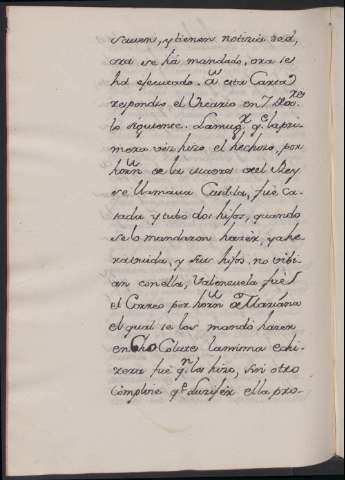 sauen, y tienen noticia toda,
ora se há mandado, ora se
há efecutado. A esta Carta
respondio el Vicario en 7 
lo siguiente. La mug.r q.e la pri-
mera vez hizo el hechizo, por
horn de la madre del Rey
se llamaua Casilda, fue Ca-
sada y tubo dos hijos, quando
se lo mandaron hazer, ya he-
ra viuda, y sus hijos no vibi-
an con ella, Valenzuela fue
el Correo por horn de Mariana
el qual se los mandó hazer
en ChoColate la misma echi-
zera fue q.n los hizo, sin otro
Complize q.e Luzifer ella pro-